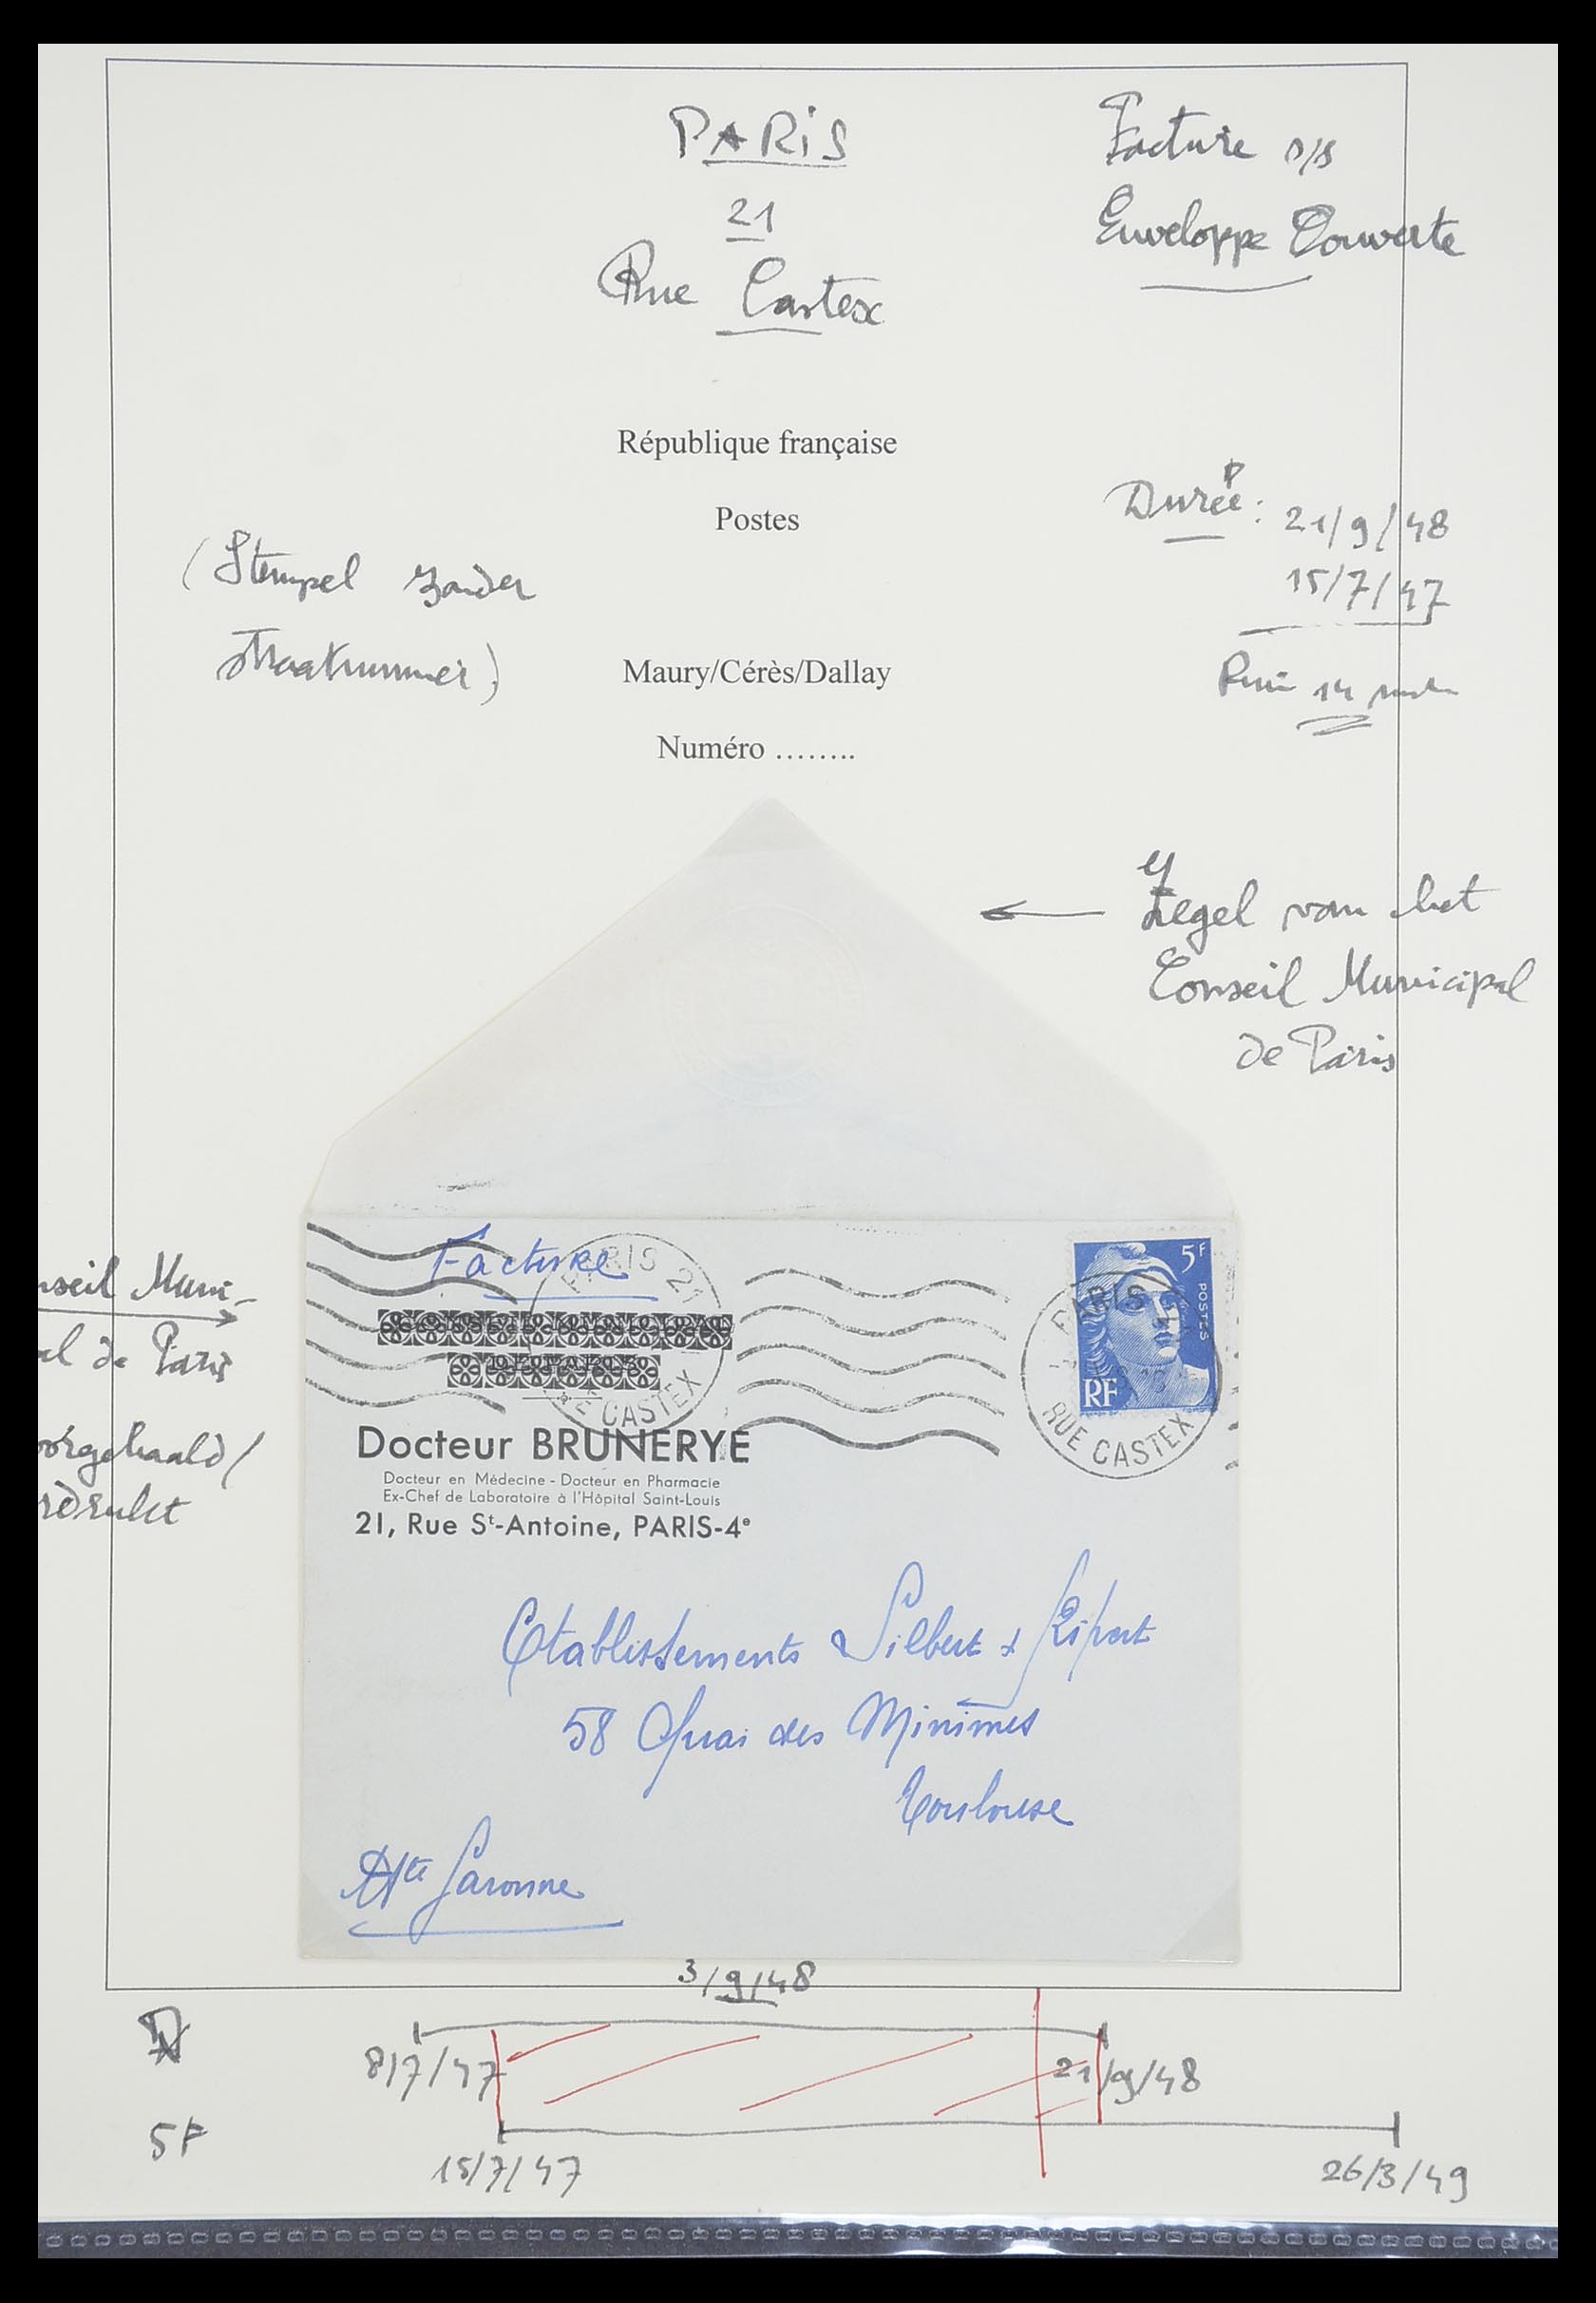 PARiS
21
Rue Castex
Facture s/s
Enveloppe Ouverte
République française
Postes
Durée: 21/9/48
15/7/47
14
(Stempel zonder
straatnummer)
Maury/Cérès/Dallay
Numéro ........
← Zegel van het
Conseil Municipal
de Paris
nseil Muni-
al de Paris
Facture
PARIS 21
RUE CASTEX
CONSEIL MUNICIPAL
DE PARIS
5F
POSTES
RF
PARIS
RUE CASTEX
Docteur BRUNERYE
Docteur en Médecine - Docteur en Pharmacie
Ex-Chef de Laboratoire à l'Hôpital Saint-Louis
21, Rue St-Antoine, PARIS-4e
Etablissements Silbert & Ripert
58 Quai des Minimes
Toulouse
Hte Garonne
3/9/48
8/7/47
21/9/48
5F
15/7/47
26/3/49